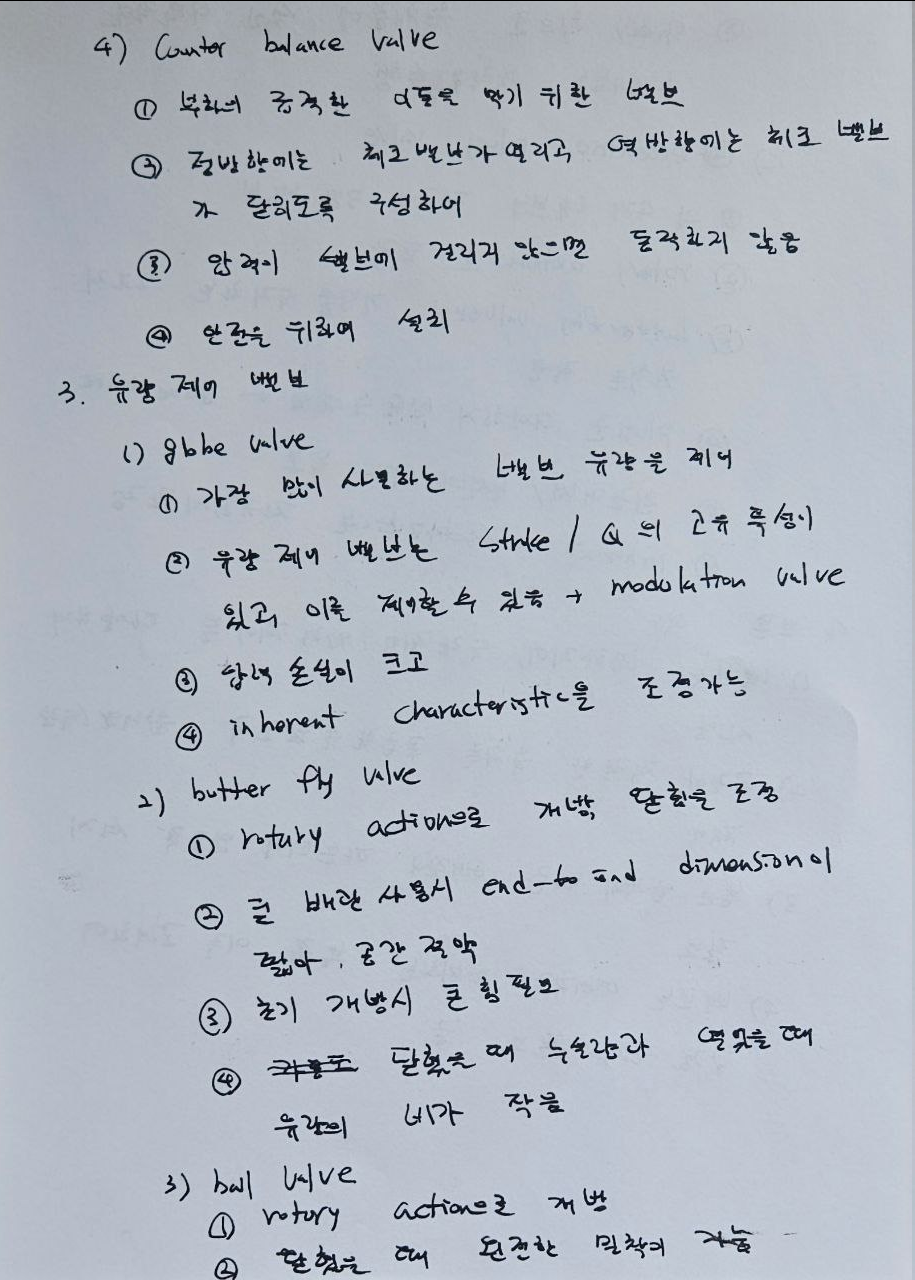 4) Counter balance valve
① 부하의 급격한 이동을 막기 위한 밸브
② 정방향에는 체크밸브가 열리고 역방향에는 체크 밸브
가 닫히도록 구성하여
③ 압력이 밸브에 걸리지 않으면 동작하지 않음
④ 안전을 위하여 설치
3. 유량 제어 밸브
1) globe valve
① 가장 많이 사용하는 밸브 유량을 제어
② 유량 제어 밸브는 Stroke / Q 의 고유 특성이
있고, 이를 제어할 수 있음 → modulation valve
③ 압력 손실이 크고
④ inherent characteristic을 조정가능
2) butter fly valve
① rotary action으로 개방, 닫힘을 조정
② 큰 배관 사용시 end-to end dimension이
짧아, 공간 절약
③ 초기 개방시 큰 힘 필요
④ 닫혔을 때 누설량과 열렸을 때
유량의 비가 작음
3) ball valve
① rotary action으로 개방
② 닫혔을 때 완전한 밀착이 가능